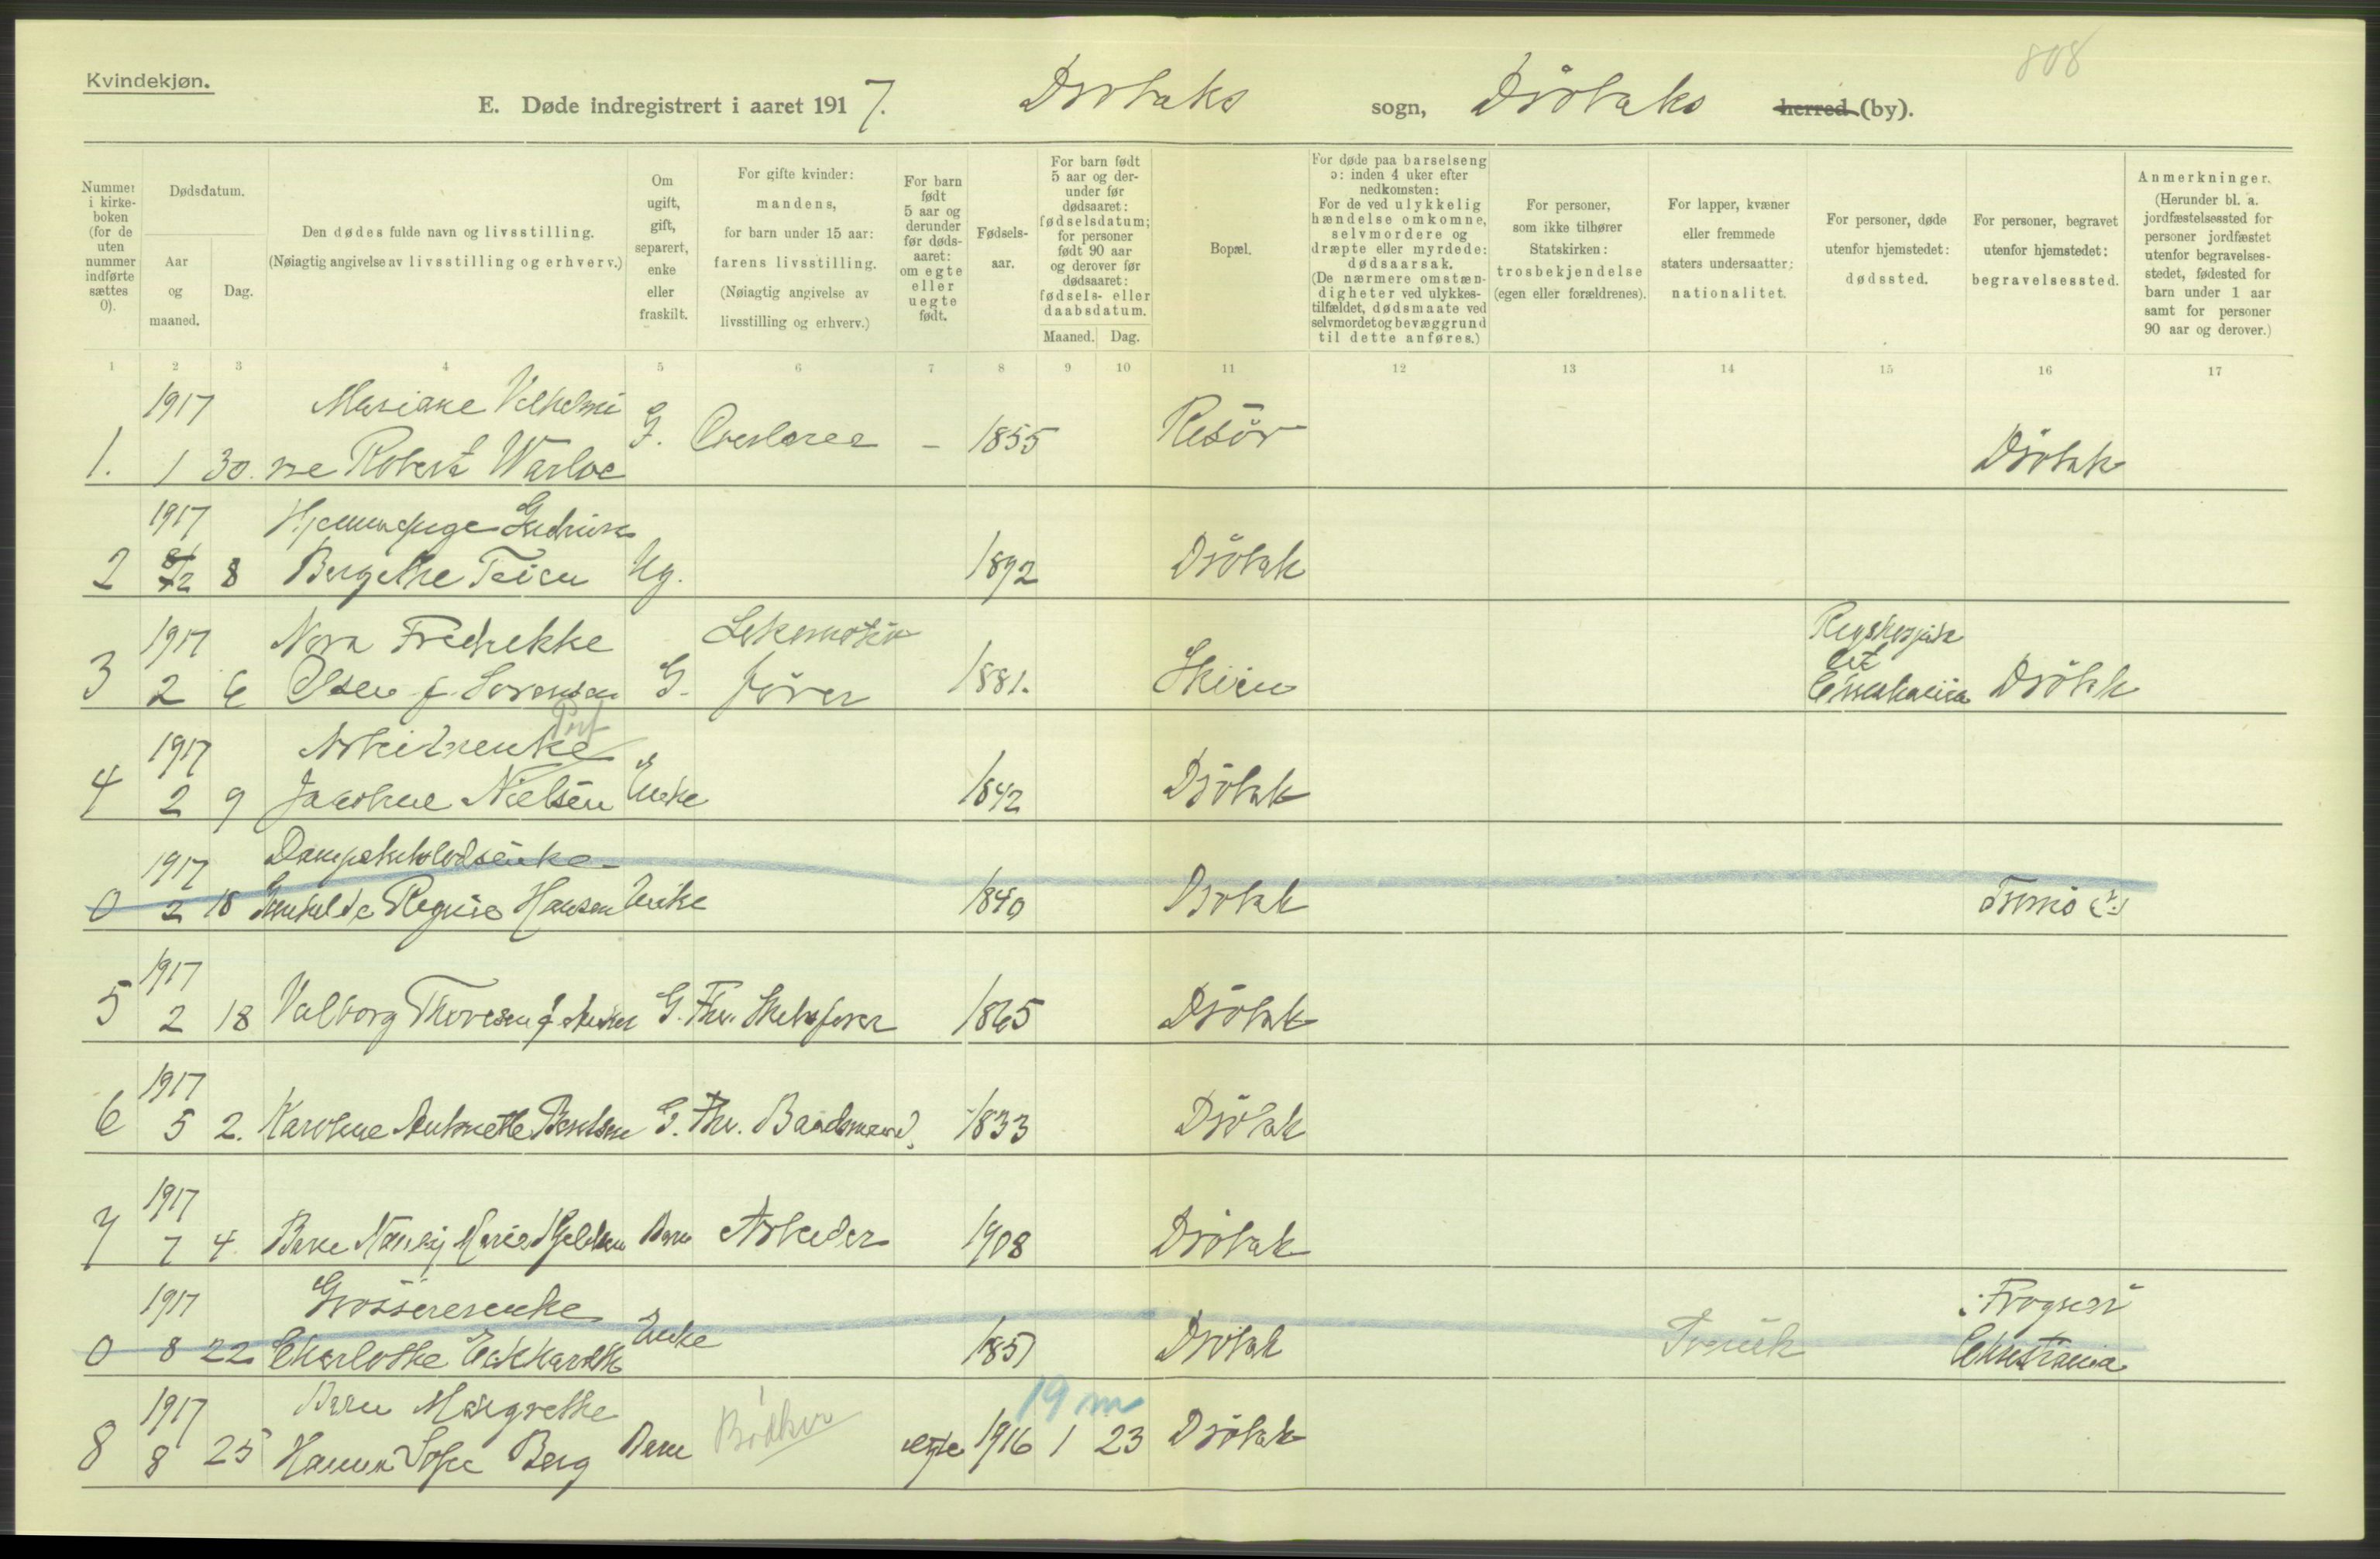 808
Kvindekjøn.
E. Døde indregistrert i aaret 1917. Drøbaks sogn, Drøbaks herred (by).
Nummer i kirkeboken (for de uten nummer indførte sættes 0).
Dødsdatum.
Aar og maaned.
Dag.
Den dødes fulde navn og livsstilling.
(Nøiagtig angivelse av livsstilling og erhverv.)
Om ugift, gift, separert, enke eller fraskilt.
For gifte kvinder: mandens, for barn under 15 aar: farens livsstilling. (Nøiagtig angivelse av livsstilling og erhverv.)
For barn født 5 aar og derunder før dødsaaret: om egte eller uegte født.
Fødselsaar.
For barn født 5 aar og derunder før dødsaaret: fødselsdatum; for personer født 90 aar og derover før dødsaaret: fødsels- eller daabsdatum.
Maaned. Dag.
Bopæl.
For døde paa barselseng ɔ: inden 4 uker efter nedkomsten: For de ved ulykkelig hændelse omkomne, selvmordere og dræpte eller myrdede: dødsaarsak. (De nærmere omstændigheter ved ulykkestilfældet, dødsmaate ved selvmordet og bevæggrund til dette anføres.)
For personer, som ikke tilhører Statskirken: trosbekjendelse (egen eller forældrenes).
For lapper, kvæner eller fremmede staters undersaatter: nationalitet.
For personer, døde utenfor hjemstedet: dødssted.
For personer, begravet utenfor hjemstedet: begravelsessted.
Anmerkninger. (Herunder bl. a. jordfæstelsessted for personer jordfæstet utenfor begravelsesstedet, fødested for barn under 1 aar samt for personer 90 aar og derover.)
1 2 3 4 5 6 7 8 9 10 11 12 13 14 15 16 17
1917 Mariane Vilhelmi
1. 1 30. ne Robert Warloe G. – 1855 Risör Dröbak
1917 Gudrun
2 2 8 Bergethe Teien Ug. 1892 Dröbak
1917 Nora Fredrekke Lokomotiv
3 2 6 Olsen f. Sorensen G. förer 1881. Skien Dröbak
1917 Arbeiderenke
4 2 9 Jacobine Nielsen Enke 1842 Dröbak
1917
0 2 18 Regine Hansen Enke 1840 Drobak Tromö (?)
1917
5 2 18 Valborg Thoresen f. G. Fhv. Skibsfører 1865 Dröbak
1917
6 5 2. Karoline Antonette G. Fhv. Baadsmand. 1833 Dröbak
1917
7 7 4. Marie Barn Arbeider 1908 Dröbak
1917 Grossererenke Frogner
0 8 22 Charlotte Eckhardt Enke 1857 Dröbak Christiania
1917 Barn Margrethe 19 m
8 8 25 Hanna Sofie Berg Barn Bödker egte 1916 1 23 Dröbak